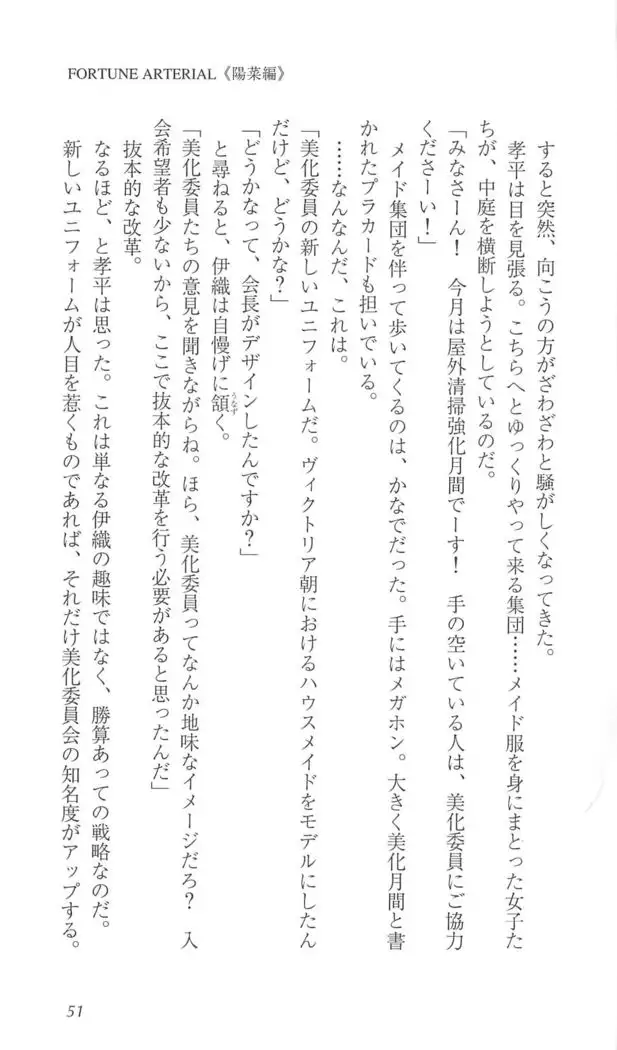 FORTUNE ARTERIAL《陽菜編》
すると突然、向こうの方がざわざわと騒がしくなってきた。
孝平は目を見張る。こちらへとゆっくりやって来る集団……メイド服を身にまとった女子た
ちが、中庭を横断しようとしているのだ。
「みなさーん!　今月は屋外清掃強化月間でーす!　手の空いている人は、美化委員にご協力
くださーい!」
メイド集団を伴って歩いてくるのは、かなでだった。手にはメガホン。大きく美化月間と書
かれたプラカードも担いでいる。
……なんなんだ、これは。
「美化委員の新しいユニフォームだ。ヴィクトリア朝におけるハウスメイドをモデルにしたん
だけど、どうかな?」
「どうかなって、会長がデザインしたんですか?」
と尋ねると、伊織は自慢げに頷く。
うなず
「美化委員たちの意見を聞きながらね。ほら、美化委員ってなんか地味なイメージだろ?　入
会希望者も少ないから、ここで抜本的な改革を行う必要があると思ったんだ」
抜本的な改革。
なるほど、と孝平は思った。これは単なる伊織の趣味ではなく、勝算あっての戦略なのだ。
新しいユニフォームが人目を惹くものであれば、それだけ美化委員会の知名度がアップする。
51